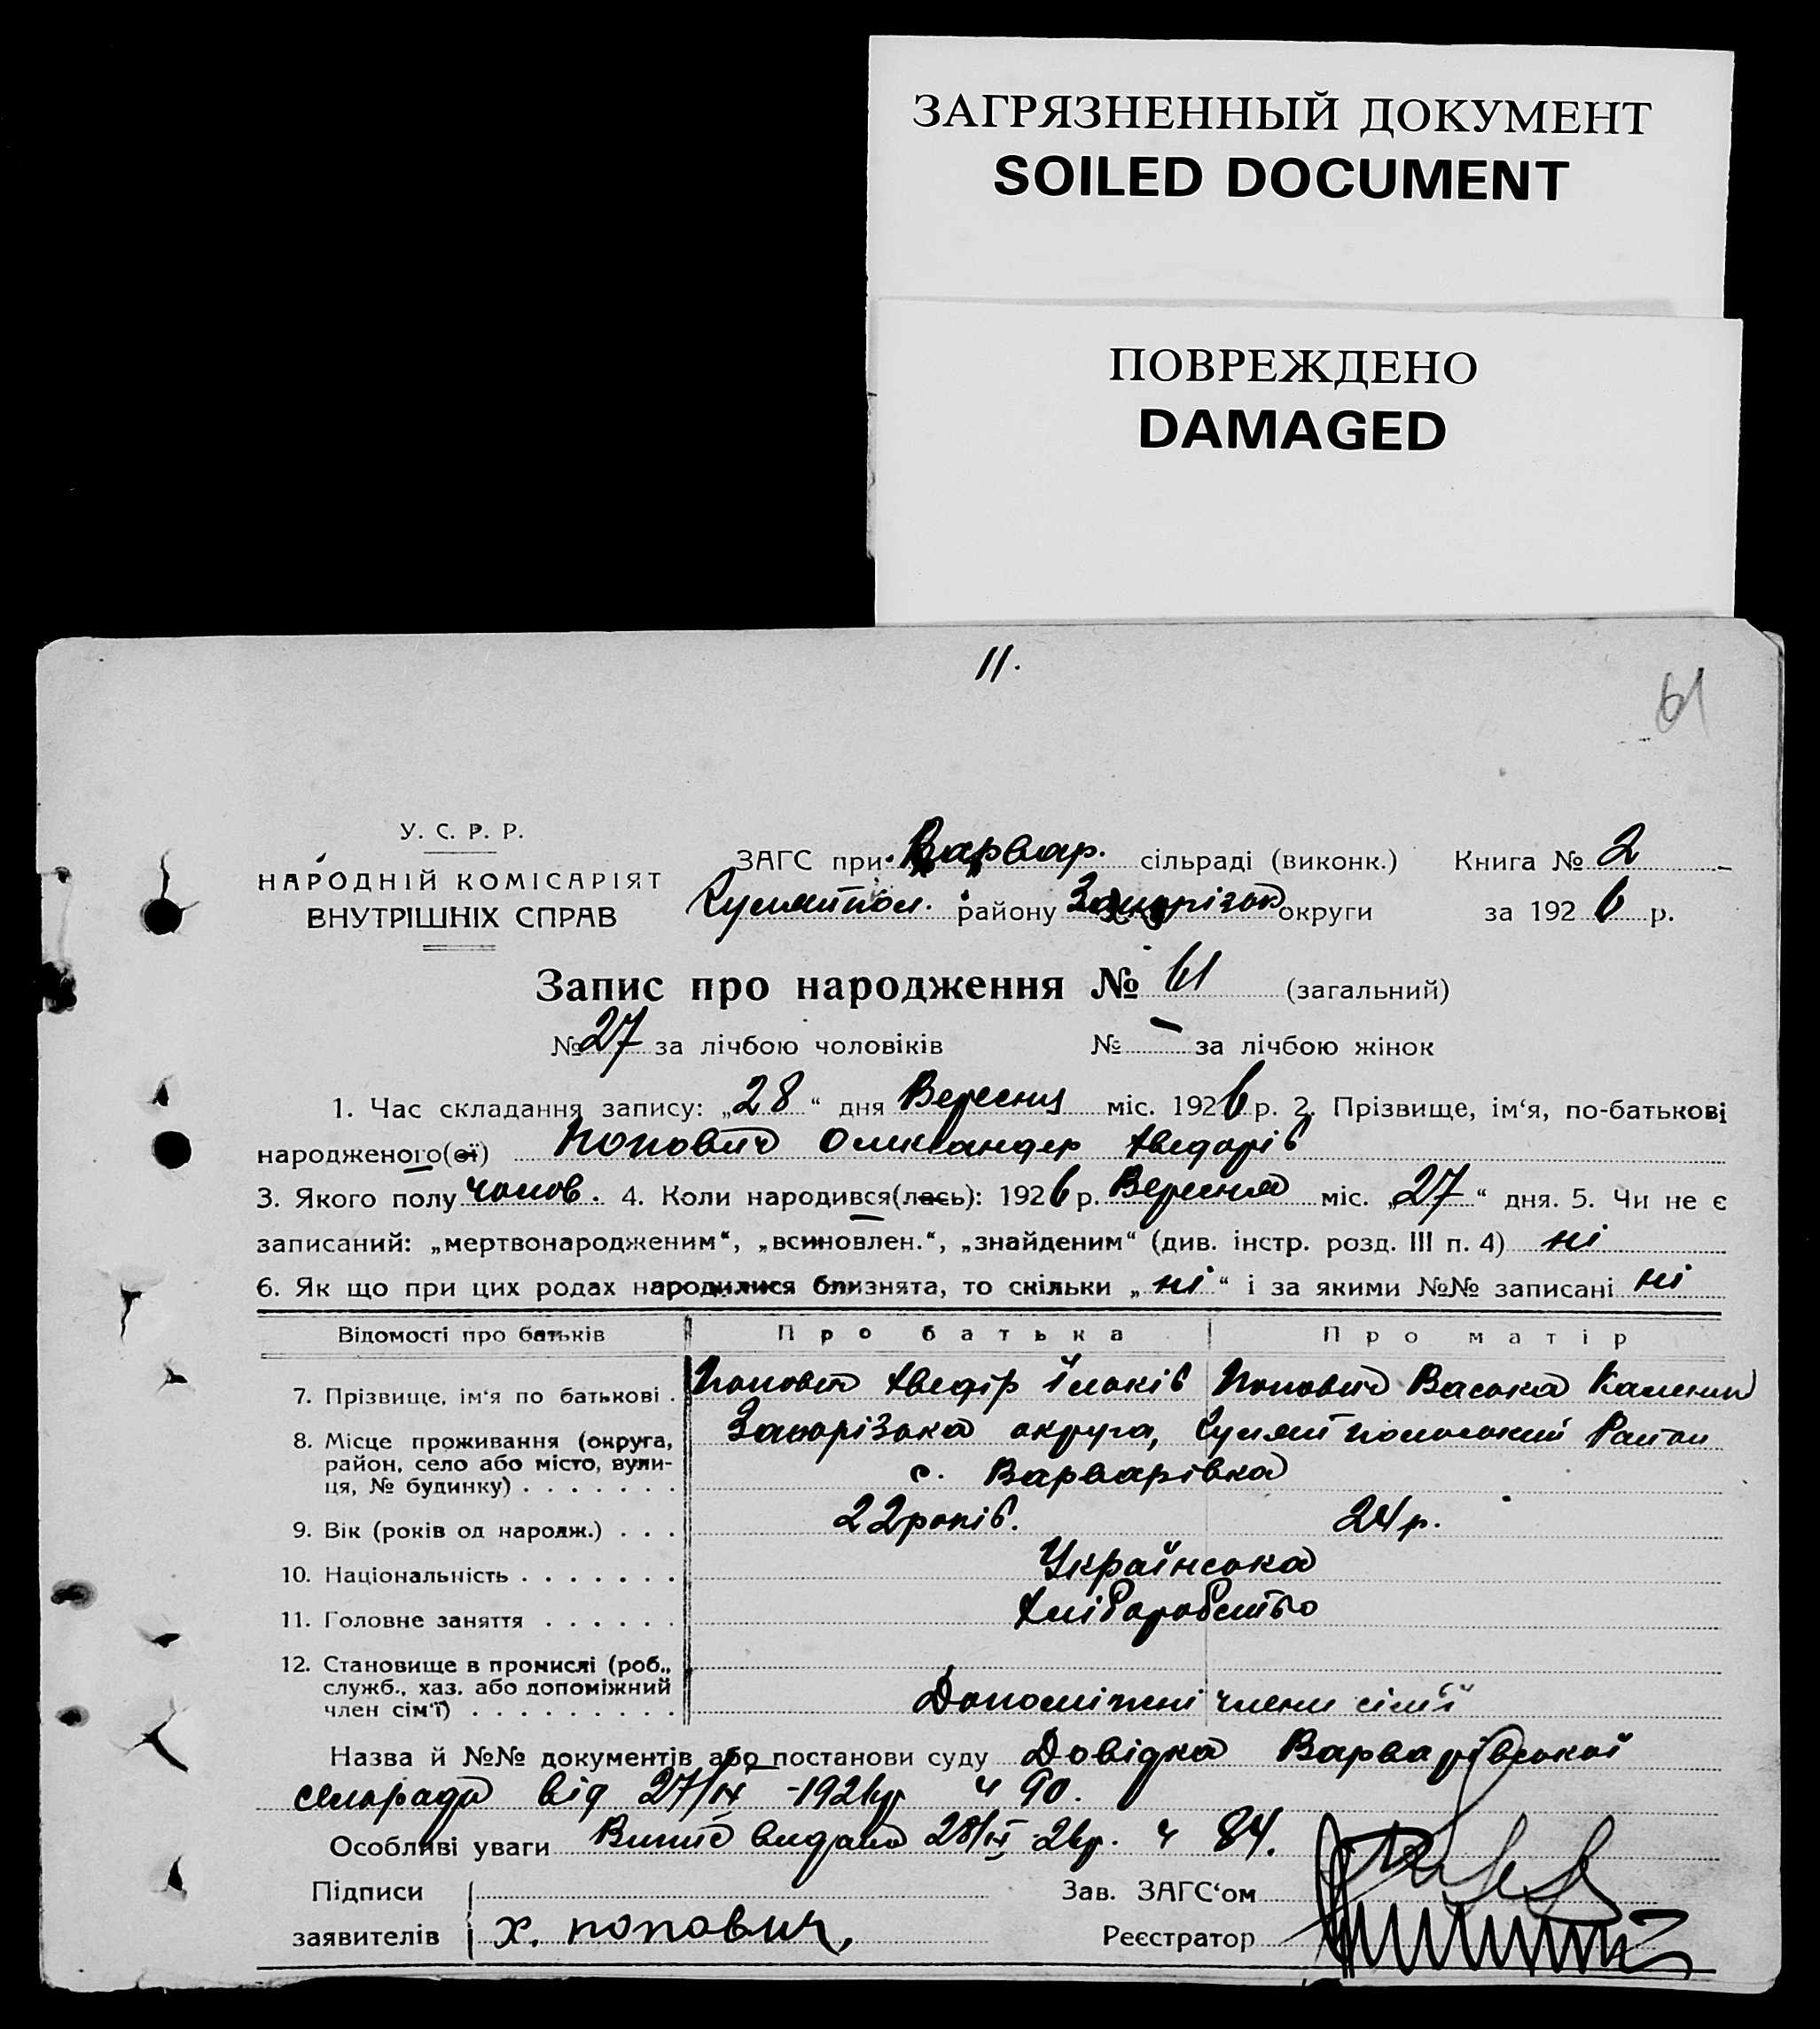 ЗАГРЯЗНЕННЫЙ ДОКУМЕНТ
SOILED DOCUMENT
ПОВРЕЖДЕНО
DAMAGED
11.
61
У. С. Р. Р.
НАРОДНІЙ КОМІСАРІЯТ
ВНУТРІШНІХ СПРАВ
ЗАГС при Варвар. сільраді (виконк.) Книга № 2
району Запорізьк округи за 1926 р.
Запис про народження № 61 (загальний)
№ 27 за лічбою чоловіків № – за лічбою жінок
1. Час складання запису: „28“ дня Вересня міс. 1926 р. 2. Прізвище, ім‘я, по-батькові
народженого(ої) Попович Олександер Хведорів
3. Якого полу чолов. 4. Коли народився(лась): 1926 р. Вересня міс. „27“ дня. 5. Чи не є
записаний: „мертвонародженим“, „всиновлен.“, „знайденим“ (див. інстр. розд. III п. 4) ні
6. Як що при цих родах народилися близнята, то скільки „ні“ і за якими №№ записані ні
Відомості про батьків Про батька Про матір
7. Прізвище, ім‘я по батькові . Попович Хведір Попович
8. Місце проживання (округа, район, село або місто, вули-ця, № будинку) . . . . . . . Запорізька округа, Район
с. Варварівка
9. Вік (років од народж.) . . . 22 років. 24 р.
10. Національність . . . . . . . Українська
11. Головне заняття . . . . . . Хліборобство
12. Становище в промислі (роб., служб., хаз. або допоміжний член сім‘ї) . . . . . . . . . Допоміжні члени сім'ї
Назва й №№ документів або постанови суду Довідка Варварівської
сільради від 27/IX -1926 р ч 90.
Особливі уваги Витяг видано 28/IX 26 р. ч 84.
Підписи Зав. ЗАГС‘ом
заявителів х. попович, Реєстратор